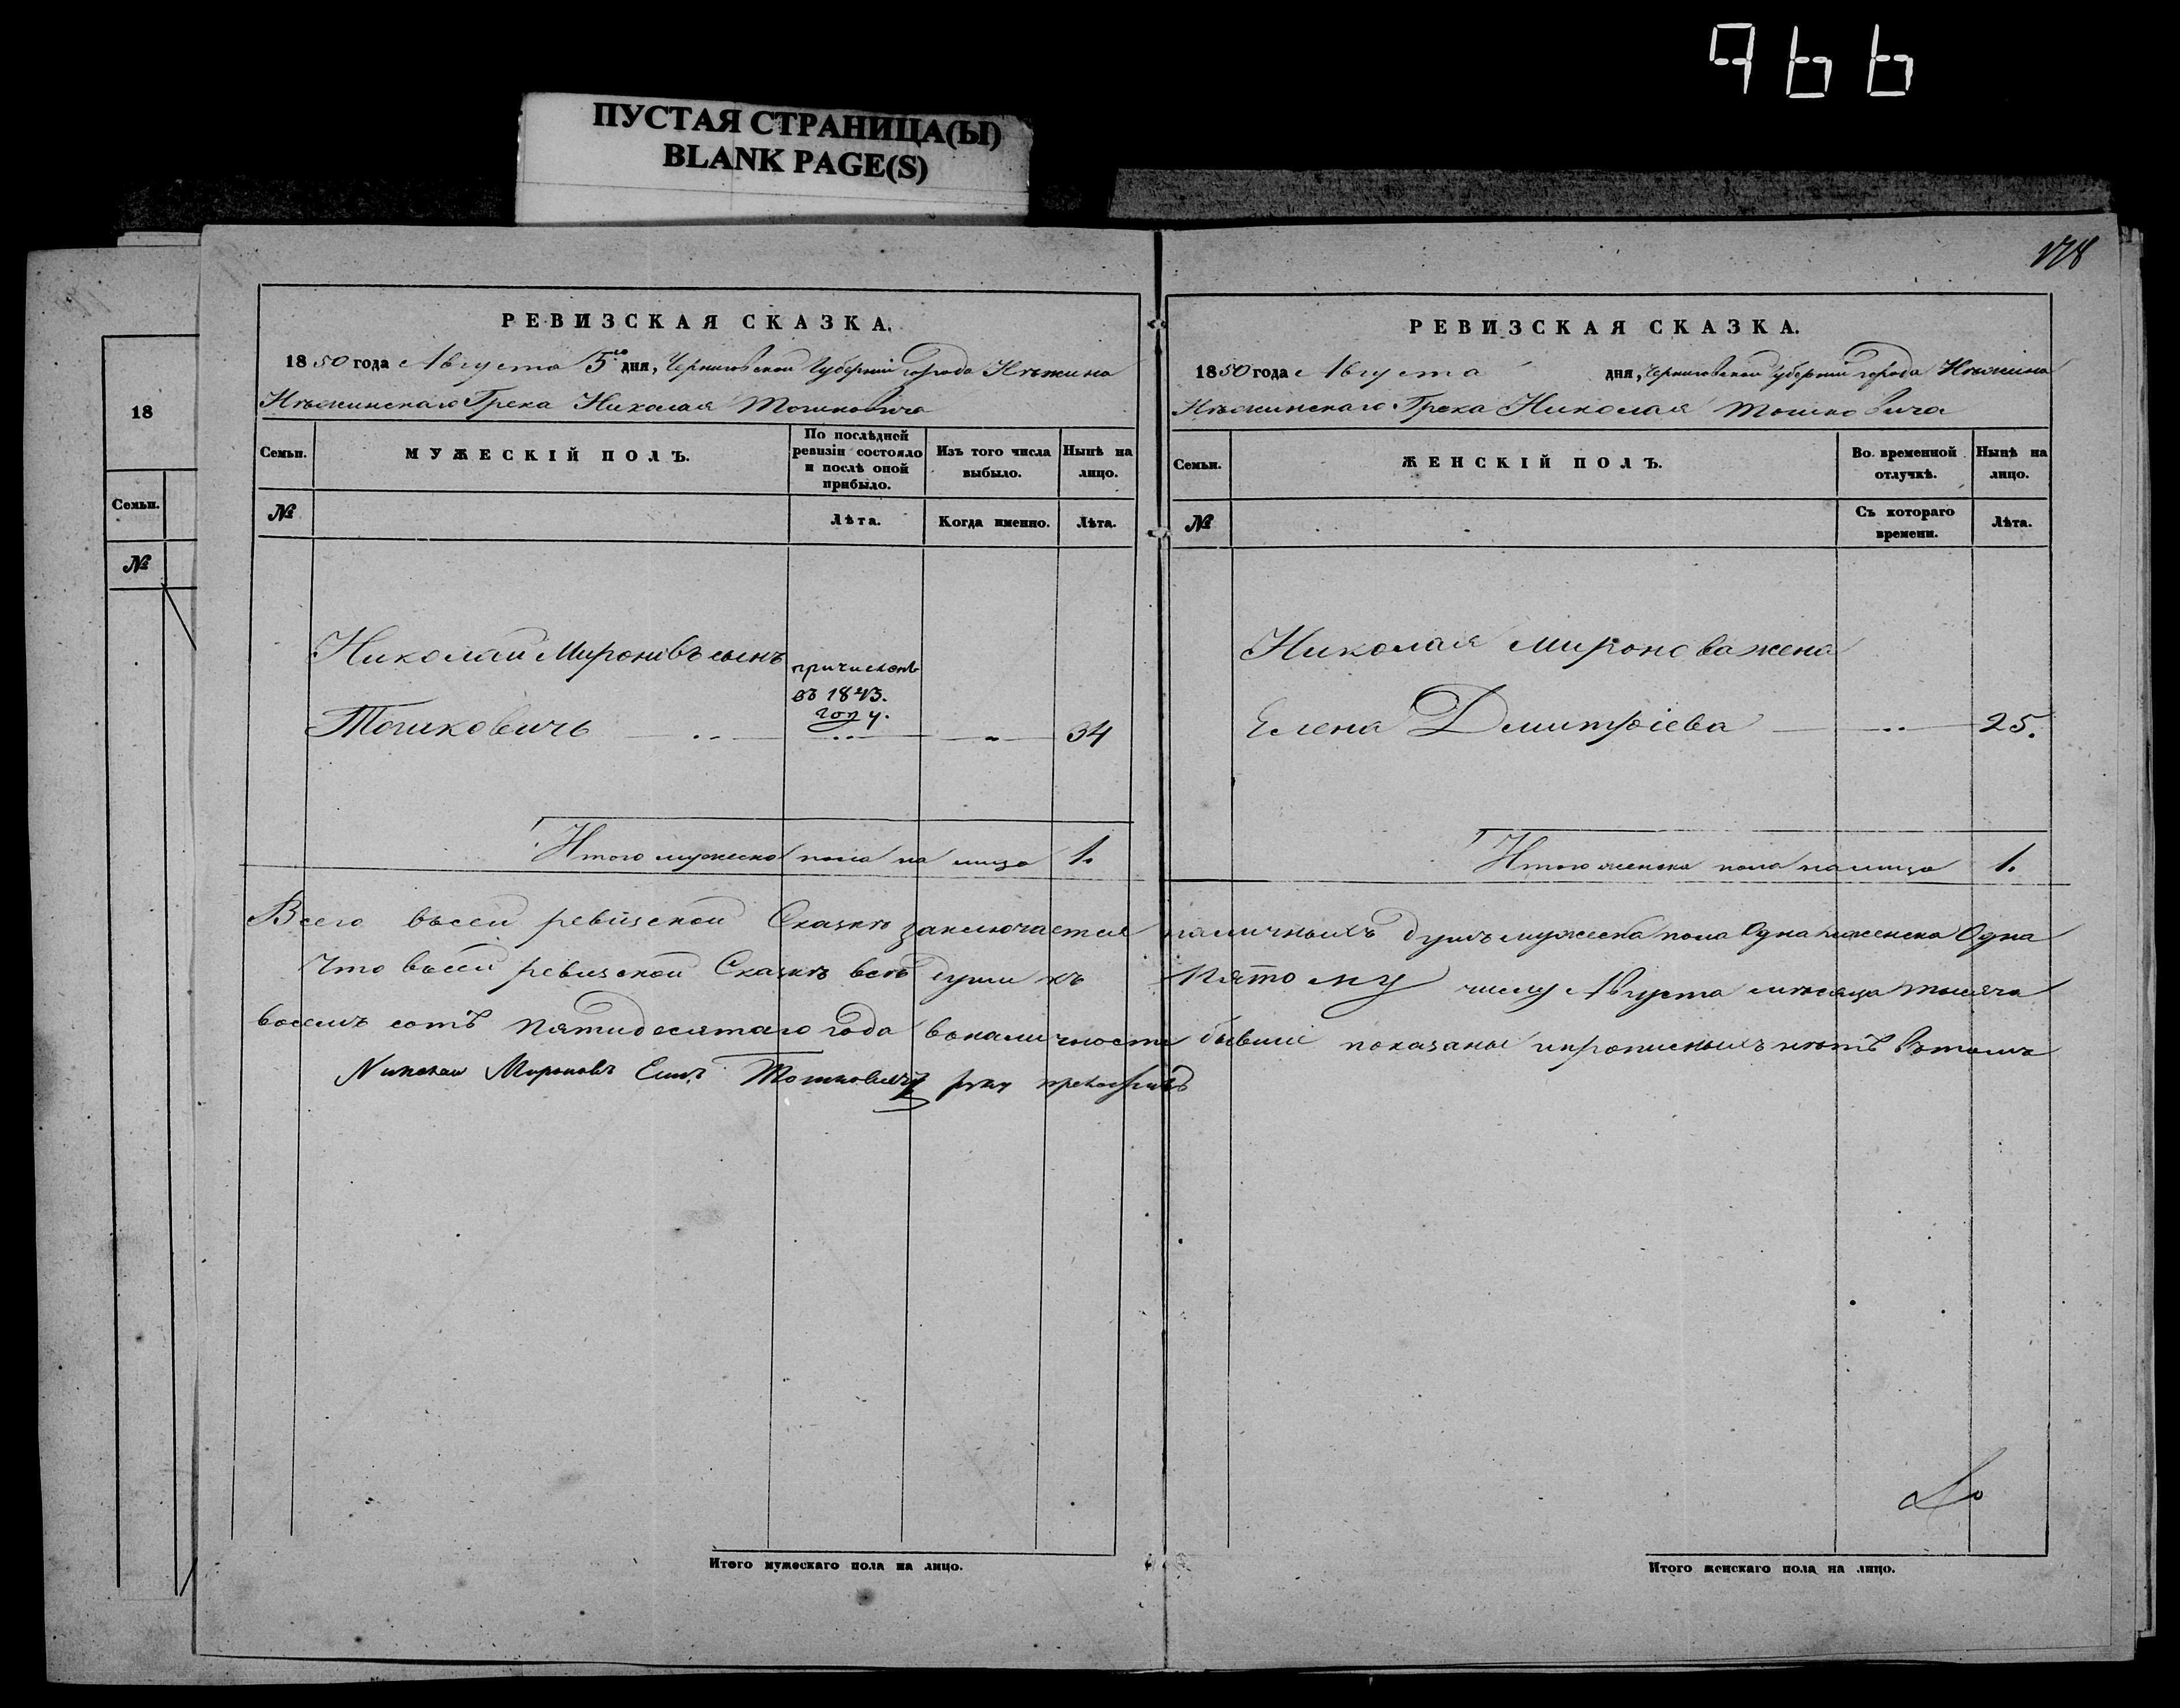 966
ПУСТАЯ СТРАНИЦА(Ы)
BLANK PAGE(S)
178
18
Семьи.
№
РЕВИЗСКАЯ СКАЗКА.
1850 года Августа 5го дня, Черниговской Губерніи города Нѣжина
Нѣжинскаго Грека Николая Тошковича
Семьи.
МУЖЕСКІЙ ПОЛЪ.
По послѣдней ревизіи состояло и послѣ оной прибыло.
Изъ того числа выбыло.
Нынѣ на лицо.
№
Лѣта.
Когда именно.
Лѣта.
Николай Мироновъ сынъ
причисленъ
въ 1843.
году.
Тошковичь 34
Итого мужеска пола на лицо 1.
РЕВИЗСКАЯ СКАЗКА.
1850 года Августа дня, Черниговской Губерніи города Нѣжина
Нѣжинскаго Грека Николая Тошковича
Семьи.
ЖЕНСКІЙ ПОЛЪ.
Во временной отлучкѣ.
Нынѣ на лицо.
№
Съ котораго времени.
Лѣта.
Николая Миронова жена
Елена Дмитріева 25.
Итого женска пола налицо 1.
Всего въсей ревизской Сказкѣ заключается наличныхъ душъ мужеска пола Одна иженска Одна
Что въсей ревизской Сказкѣ всѣ души къ Пятому числу Августа мѣсяца тысяча
восемъ сотъ Пятидесятаго года вналичности бывшіе показаны ипрописныхъ нѣтъ Втомъ
Николай Мироновъ Сынъ Тошковичъ руку приложилъ
Итого мужескаго пола на лицо.
Итого женскаго пола на лицо.